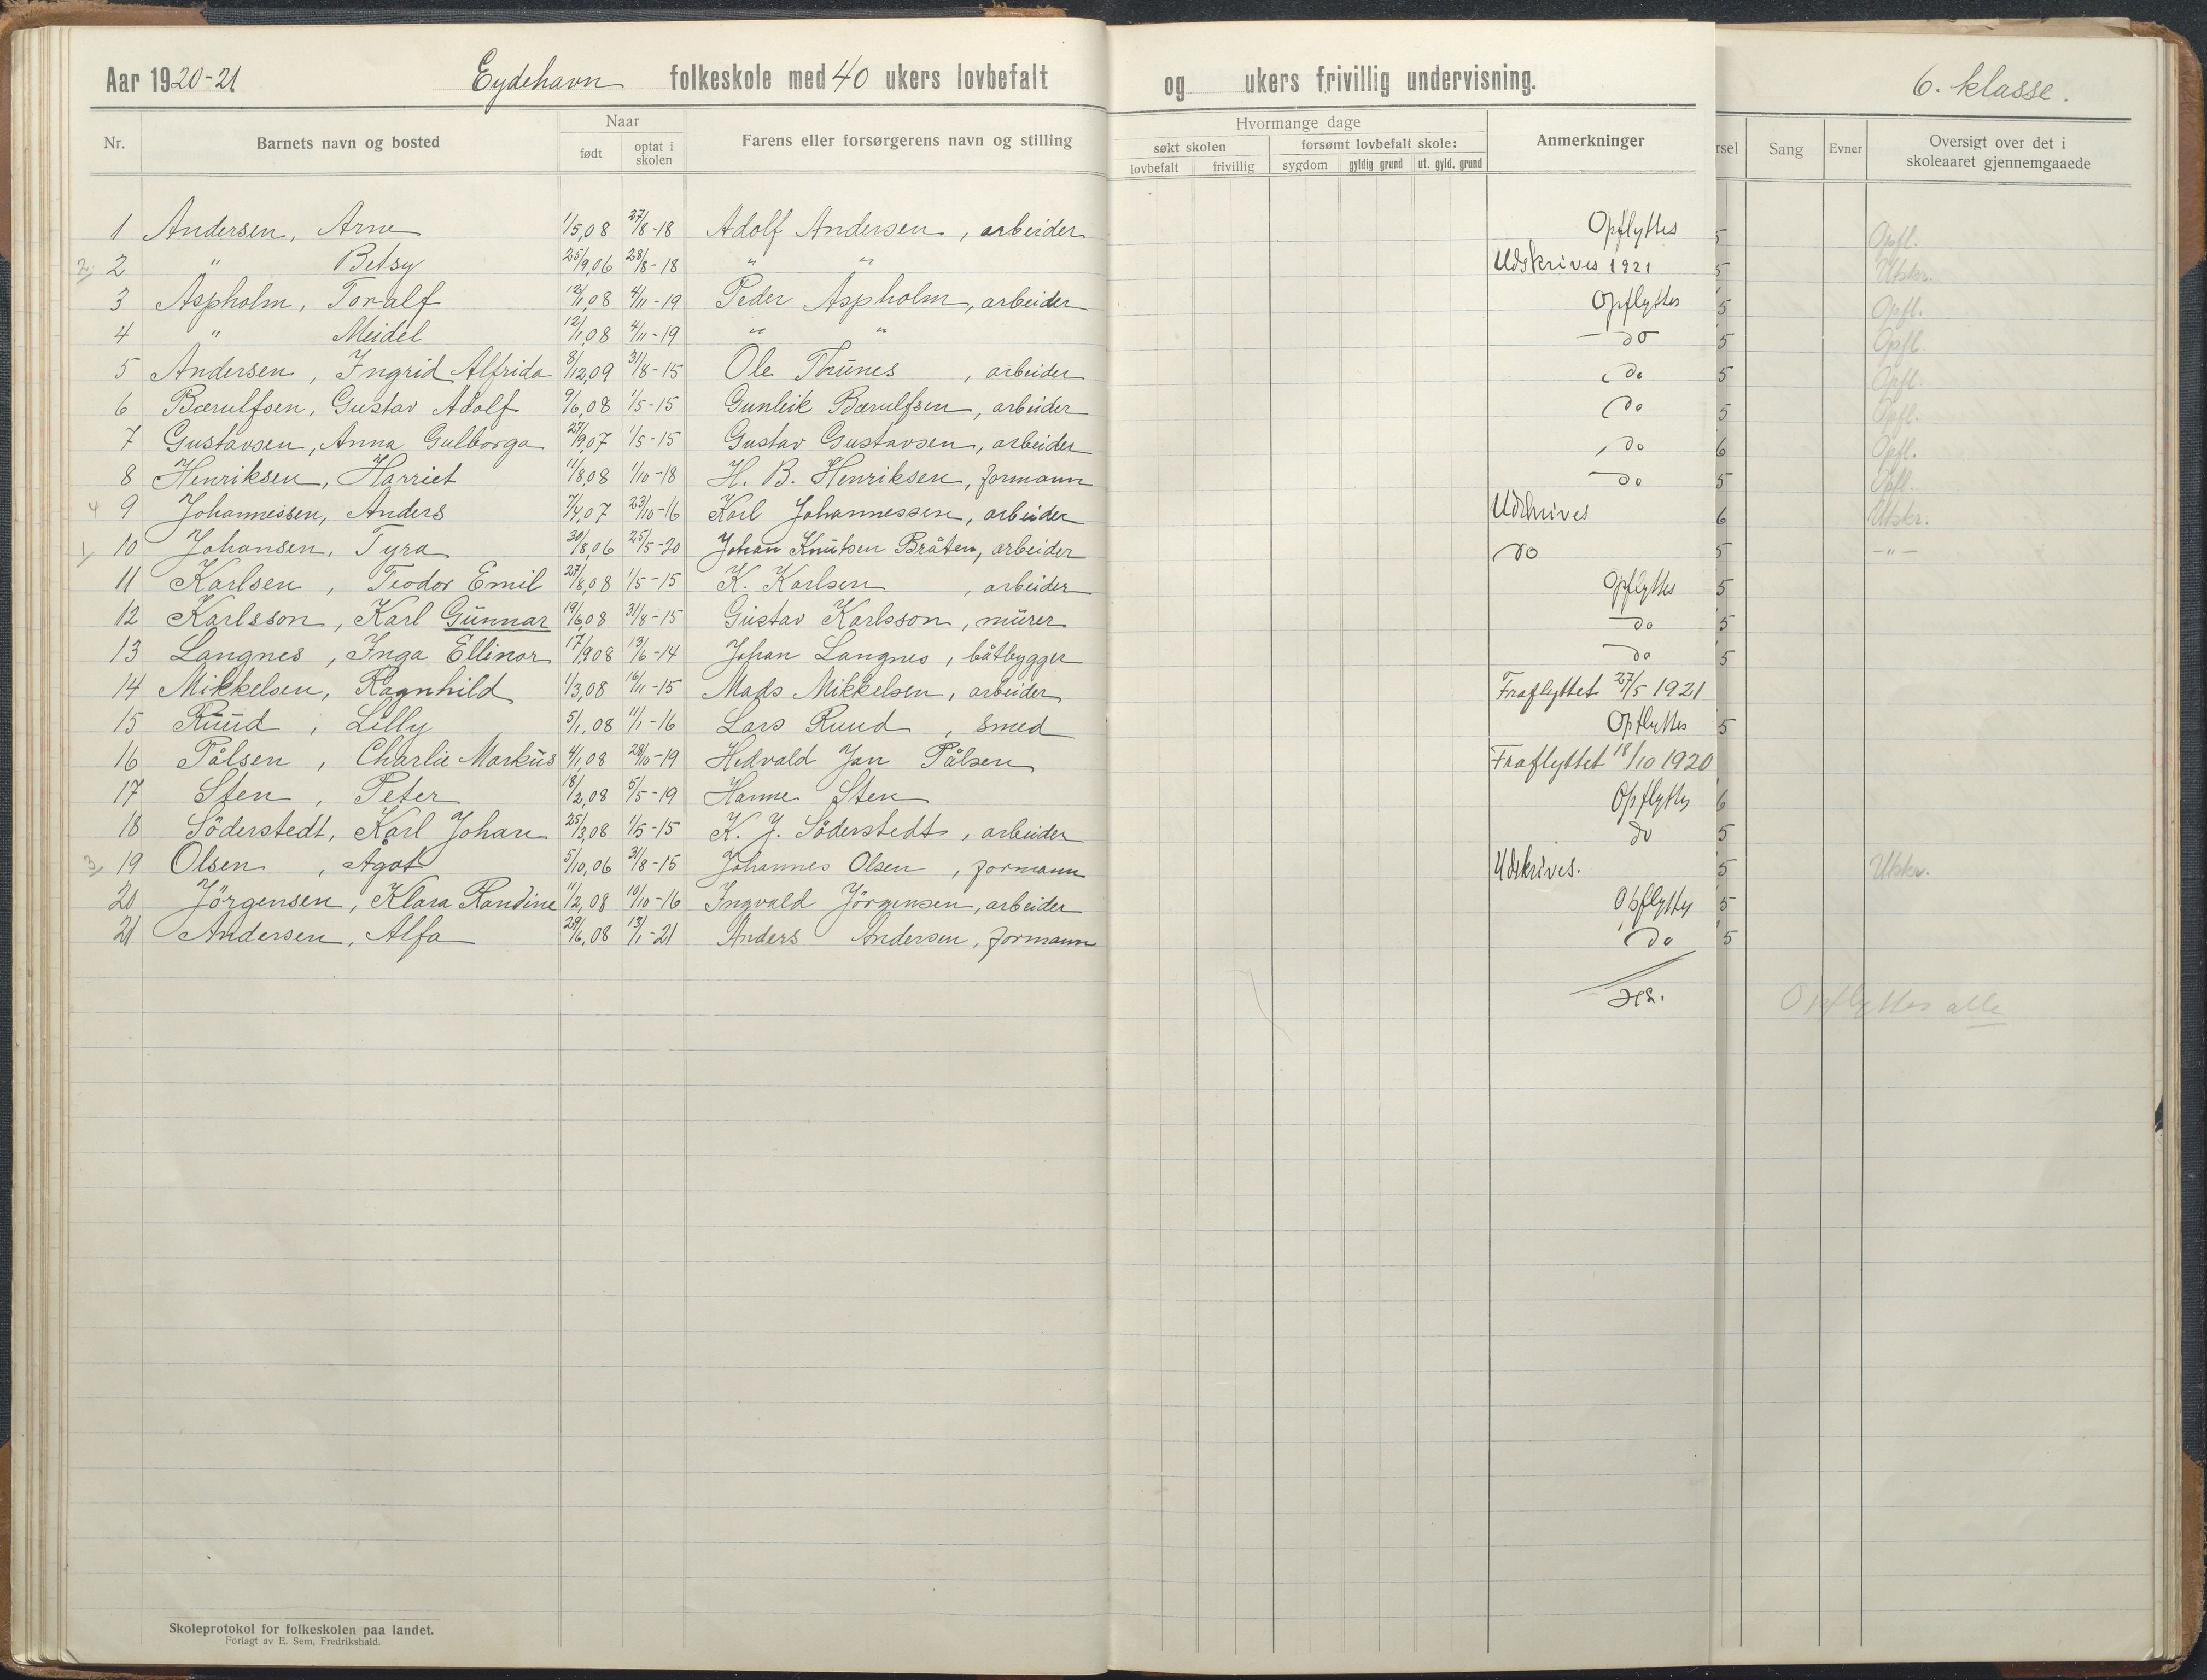 Aar 1920-21 Eydehavn folkeskole med 40 ukers lovbefalt og ukers frivillig undervisning. 6. klasse.
Nr. Barnets navn og bosted Naar født optat i skolen Farens eller forsørgerens navn og stilling Hvormange dage søkt skolen lovbefalt frivillig forsømt lovbefalt skole: sygdom gyldig grund ut. gyld. grund Anmerkninger rsel Sang Evner Oversigt over det i skoleaaret gjennemgaaede
1 Andersen, Arne 1/5,08 27/8-18 Adolf Andersen, arbeider Opflyttes 5 Opfl.
2, 2 " Betsy 25/9,06 28/8-18 " " Udskrives 1921 5 Utskr.
3 Aspholm, Toralf 12/1,08 4/11-19 Peder Aspholm, arbeider Opflyttes 5 Opfl.
4 " Meidel 12/1,08 4/11-19 " " do 5 Opfl
5 Andersen, Ingrid Alfrida 8/12,09 31/8-15 Ole Thunes, arbeider do 5 Opfl.
6 Bærulfsen, Gustav Adolf 9/6,08 1/5-15 Gunleik Bærulfsen, arbeider do 5 Opfl.
7 Gustavsen, Anna Gulborga 27/9,07 1/5-15 Gustav Gustavsen, arbeider do 6 Opfl.
8 Henriksen, Harriet 11/8,08 1/10-18 H. B. Henriksen, formann do 5 Opfl.
4 9 Johannessen, Anders 7/4,07 23/10-16 Karl Johannessen, arbeider Udskrives 6 Utskr.
1, 10 Johansen, Tyra 30/8,06 25/5-20 Johan Knutsen Bråten, arbeider do 5 -"-
11 Karlsen, Teodor Emil 27/8,08 1/5-15 K. Karlsen, arbeider Opflyttes 5
12 Karlsson, Karl Gunnar 19/6,08 31/8-15 Gustav Karlsson, murer do 5
13 Langnes, Inga Ellinor 17/9,08 13/6-14 Johan Langnes, båtbygger do 5
14 Mikkelsen, Ragnhild 1/3,08 16/11-15 Mads Mikkelsen, arbeider Fraflyttet 27/5 1921
15 Ruud, Lilly 5/1,08 11/1-16 Lars Ruud, smed Opflyttes 5
16 Pålsen, Charlie Markus 4/1,08 28/10-19 Hedvald Jan Pålsen Fraflyttet 18/10 1920
17 Sten, Peter 18/2,08 5/5-19 Hanne Sten Opflyttes 6
18 Söderstedt, Karl Johan 25/3,08 1/5-15 K. J. Söderstedt, arbeider do 5
3, 19 Olsen, Ågot 5/10,06 31/8-15 Johannes Olsen, formann Udskrives. 5 Utskr.
20 Jörgensen, Klara Randine 11/2,08 10/10-16 Ingvald Jörgensen, arbeider Opflyttes 5
21 Andersen, Alfa 29/6,08 13/1-21 Anders Andersen, formann do 5
Opflyttes alle
Skoleprotokol for folkeskolen paa landet.
Forlagt av E. Sem, Fredrikshald.